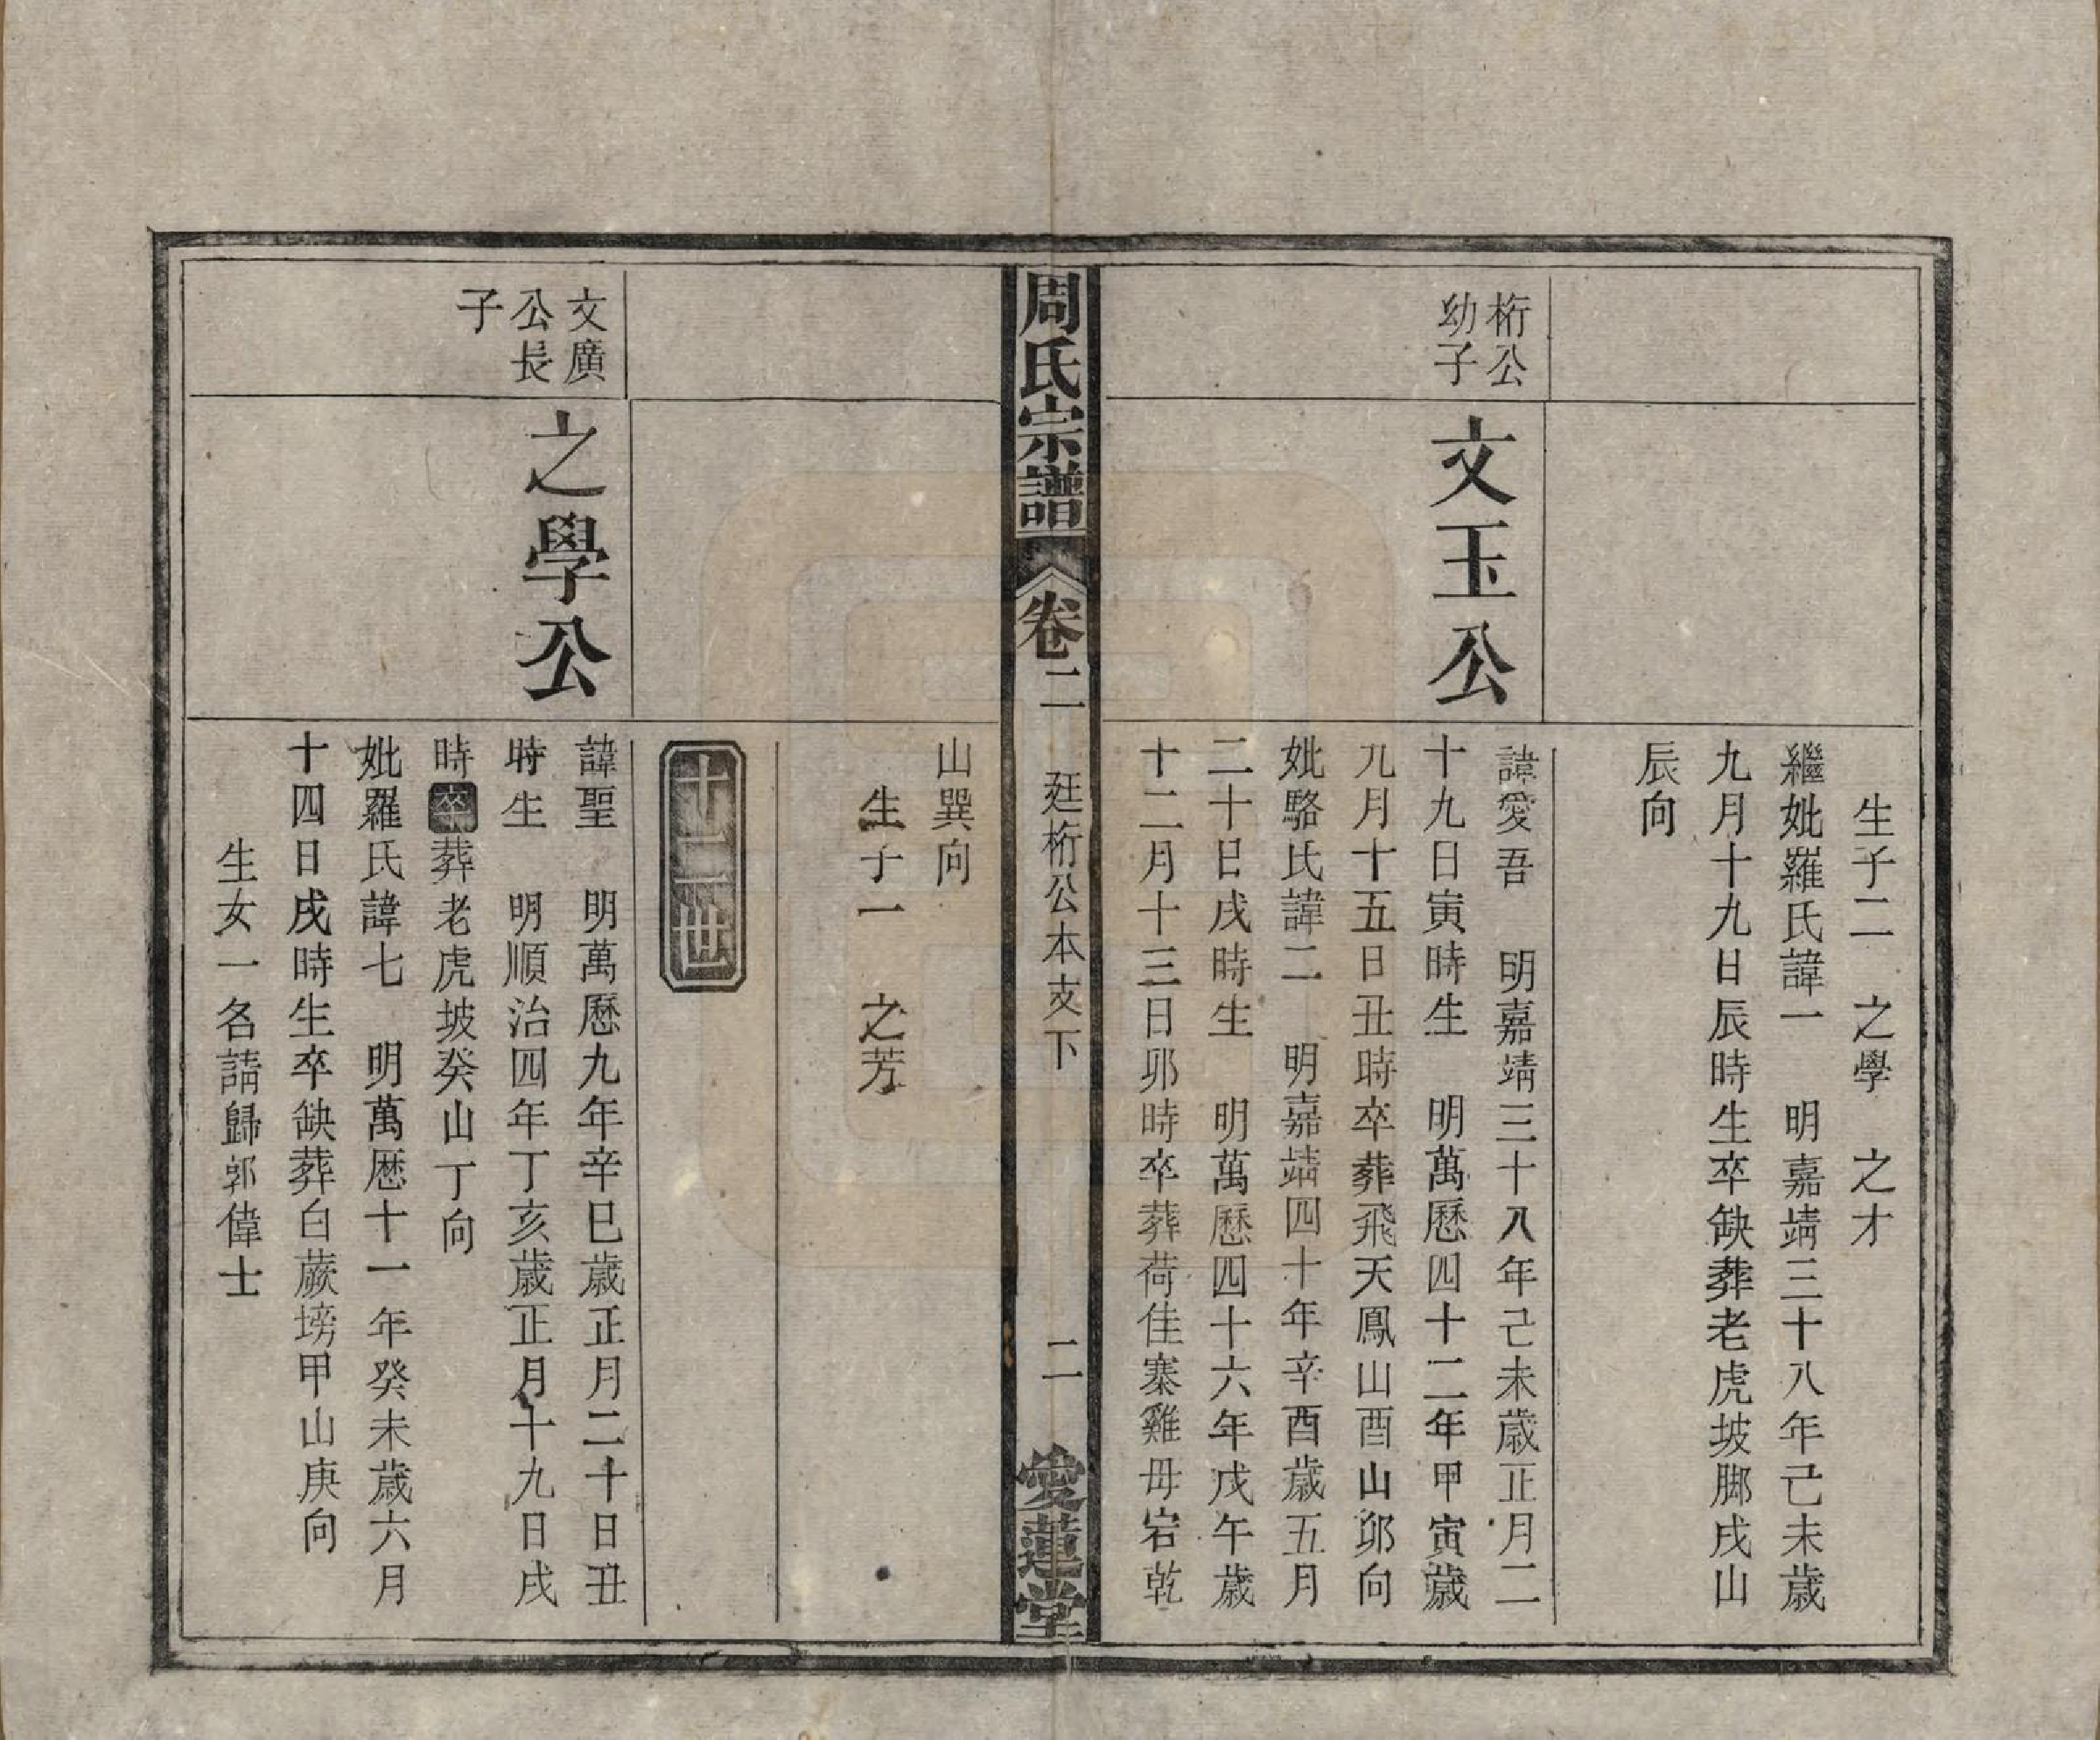 生子二　之學　之才
繼妣羅氏諱一　明嘉靖三十八年己未歲
九月十九日辰時生卒缺葬老虎坡脚戌山
辰向
桁公
幼子
文玉公
諱愛吾　明嘉靖三十八年己未歲正月二
十九日寅時生　明萬歷四十二年甲寅歲
九月十五日丑時卒葬飛天鳳山酉山卯向
妣駱氏諱二　明嘉靖四十年辛酉歲五月
二十日戌時生　明萬歷四十六年戊午歲
十二月十三日卯時卒葬荷佳寨雞母岩乾
周氏宗譜
卷二
廷桁公本支下
二
愛蓮堂
山巽向
生子一　之芳
十二世
文廣
公長
子
之學公
諱聖　明萬歷九年辛巳歲正月二十日丑
時生　明順治四年丁亥歲正月十九日戌
時卒葬老虎坡癸山丁向
妣羅氏諱七　明萬歷十一年癸未歲六月
十四日戌時生卒缺葬白蕨塝甲山庚向
生女一名請歸郭偉士